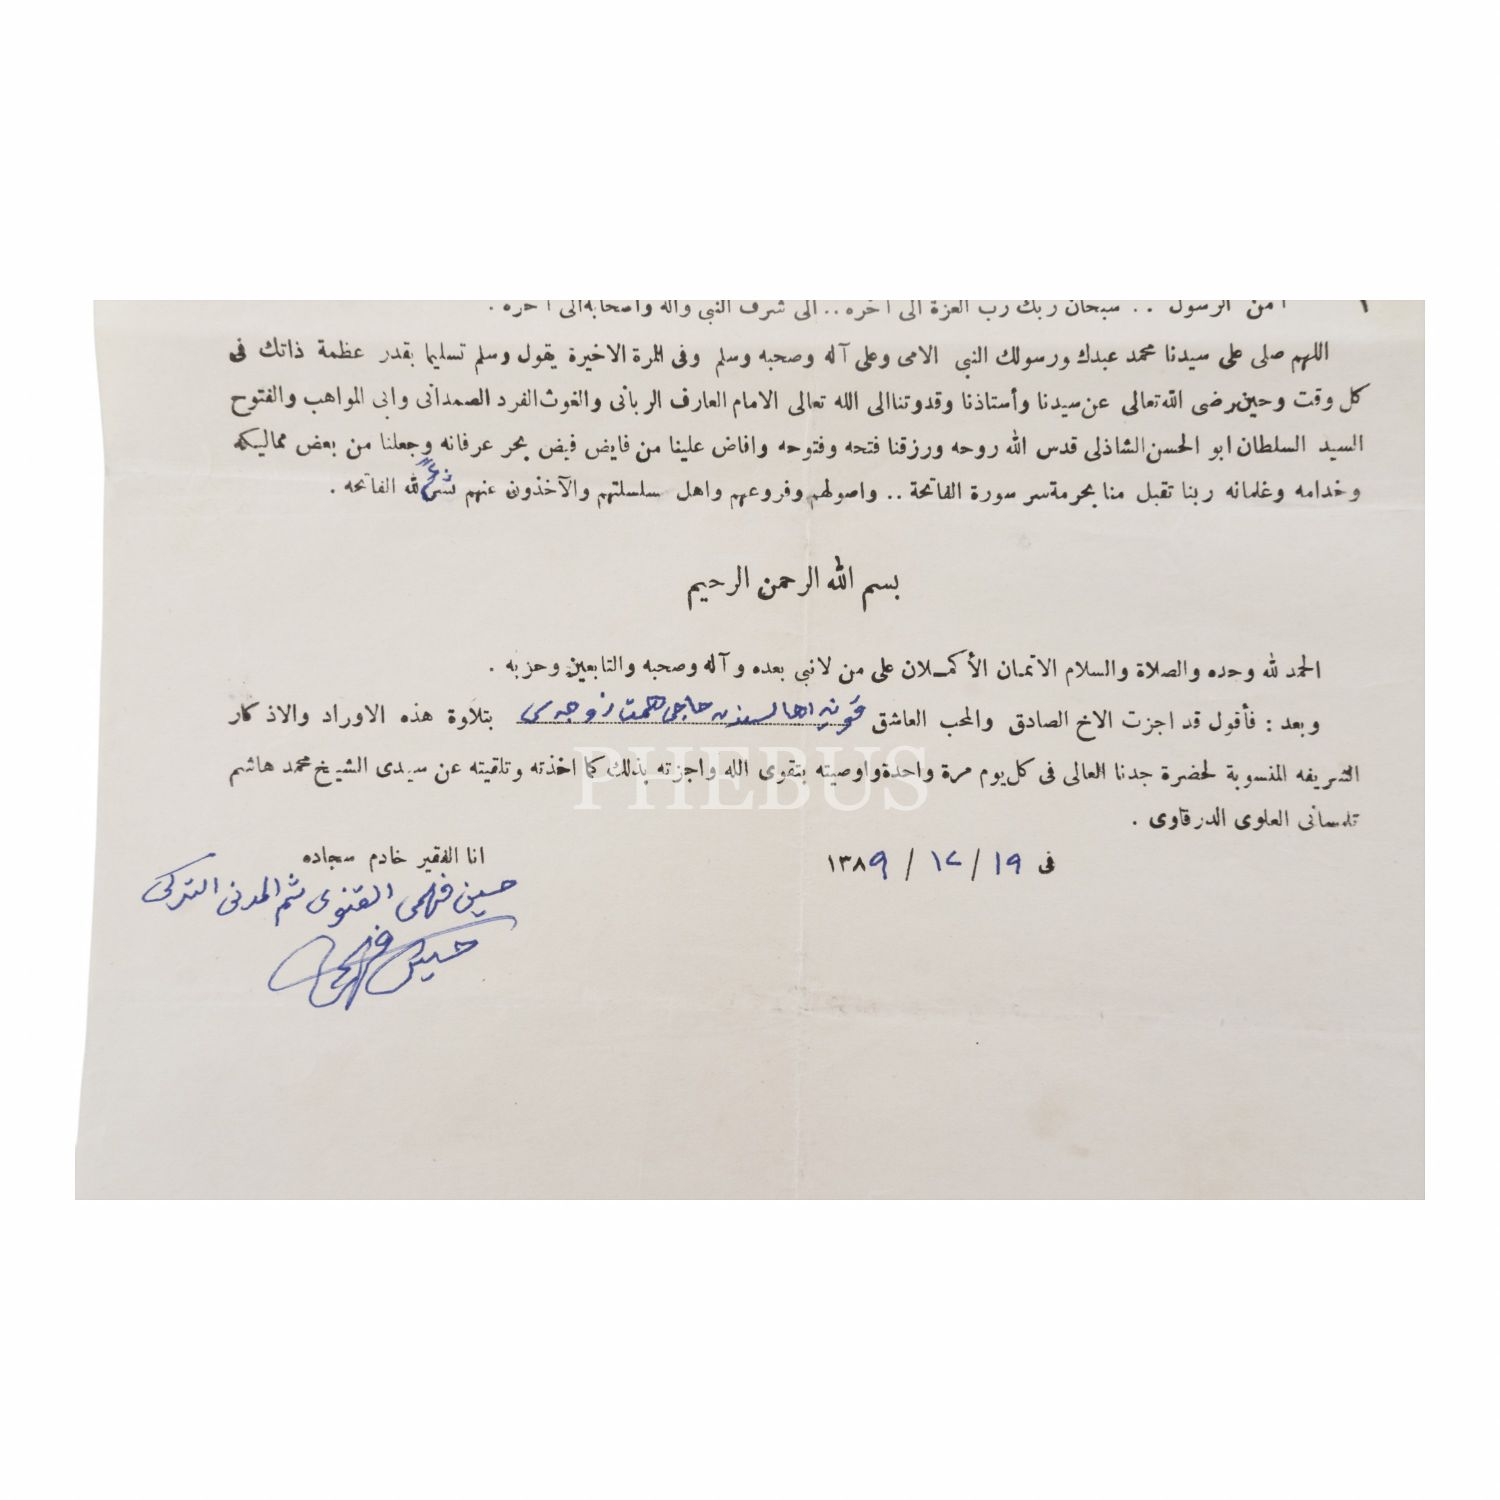 آمن الرسول .. سبحان ربك رب العزة الى آخره .. الى شرف النبي وآله واصحابه الى آخره .
اللهم صلى على سيدنا محمد عبدك ورسولك النبي الامى وعلى آله وصحبه وسلم وفى المرة الاخيرة يقول وسلم تسليما بقدر عظمة ذاتك فى
كل وقت وحين رضى الله تعالى عن سيدنا وأستاذنا وقدوتنا الى الله تعالى الامام العارف الربانى والغوث الفرد الصمدانى وابى المواهب والفتوح
السيد السلطان ابو الحسن الشاذلى قدس الله روحه ورزقنا فتحه وفتوحه وافاض علينا من فايض فيض بحر عرفانه وجعلنا من بعض مماليكه
وخدامه وغلمانه ربنا تقبل منا بحرمة سر سورة الفاتحة .. واصولهم وفروعهم واهل سلسلتهم والآخذون عنهم لله الفاتحه .
بسم الله الرحمن الرحيم
الحمد لله وحده والصلاة والسلام الاتمان الأكمـلان على من لا نبي بعده وآله وصحبه والتابعين وحزبه .
وبعد : فأقول قد اجزت الاخ الصادق والمحب العاشق قونيه اهاليسندن حاجى حكمت زوجه سى بتلاوة هذه الاوراد والاذكار
الشريفه المنسوبة لحضرة جدنا العالى فى كل يوم مرة واحدة واوصيته بتقوى الله واجزته بذلك كما اخذته وتلقيته عن سيدى الشيخ محمد هاشم
تلمسانى العلوى الدرقاوى .
فى ١٩ / ١٢ / ١٣٨٩
انا الفقير خادم سجاده
حسين فهمى القنوى ثم المدنى التركى
حسين فهمى
PHEBUS